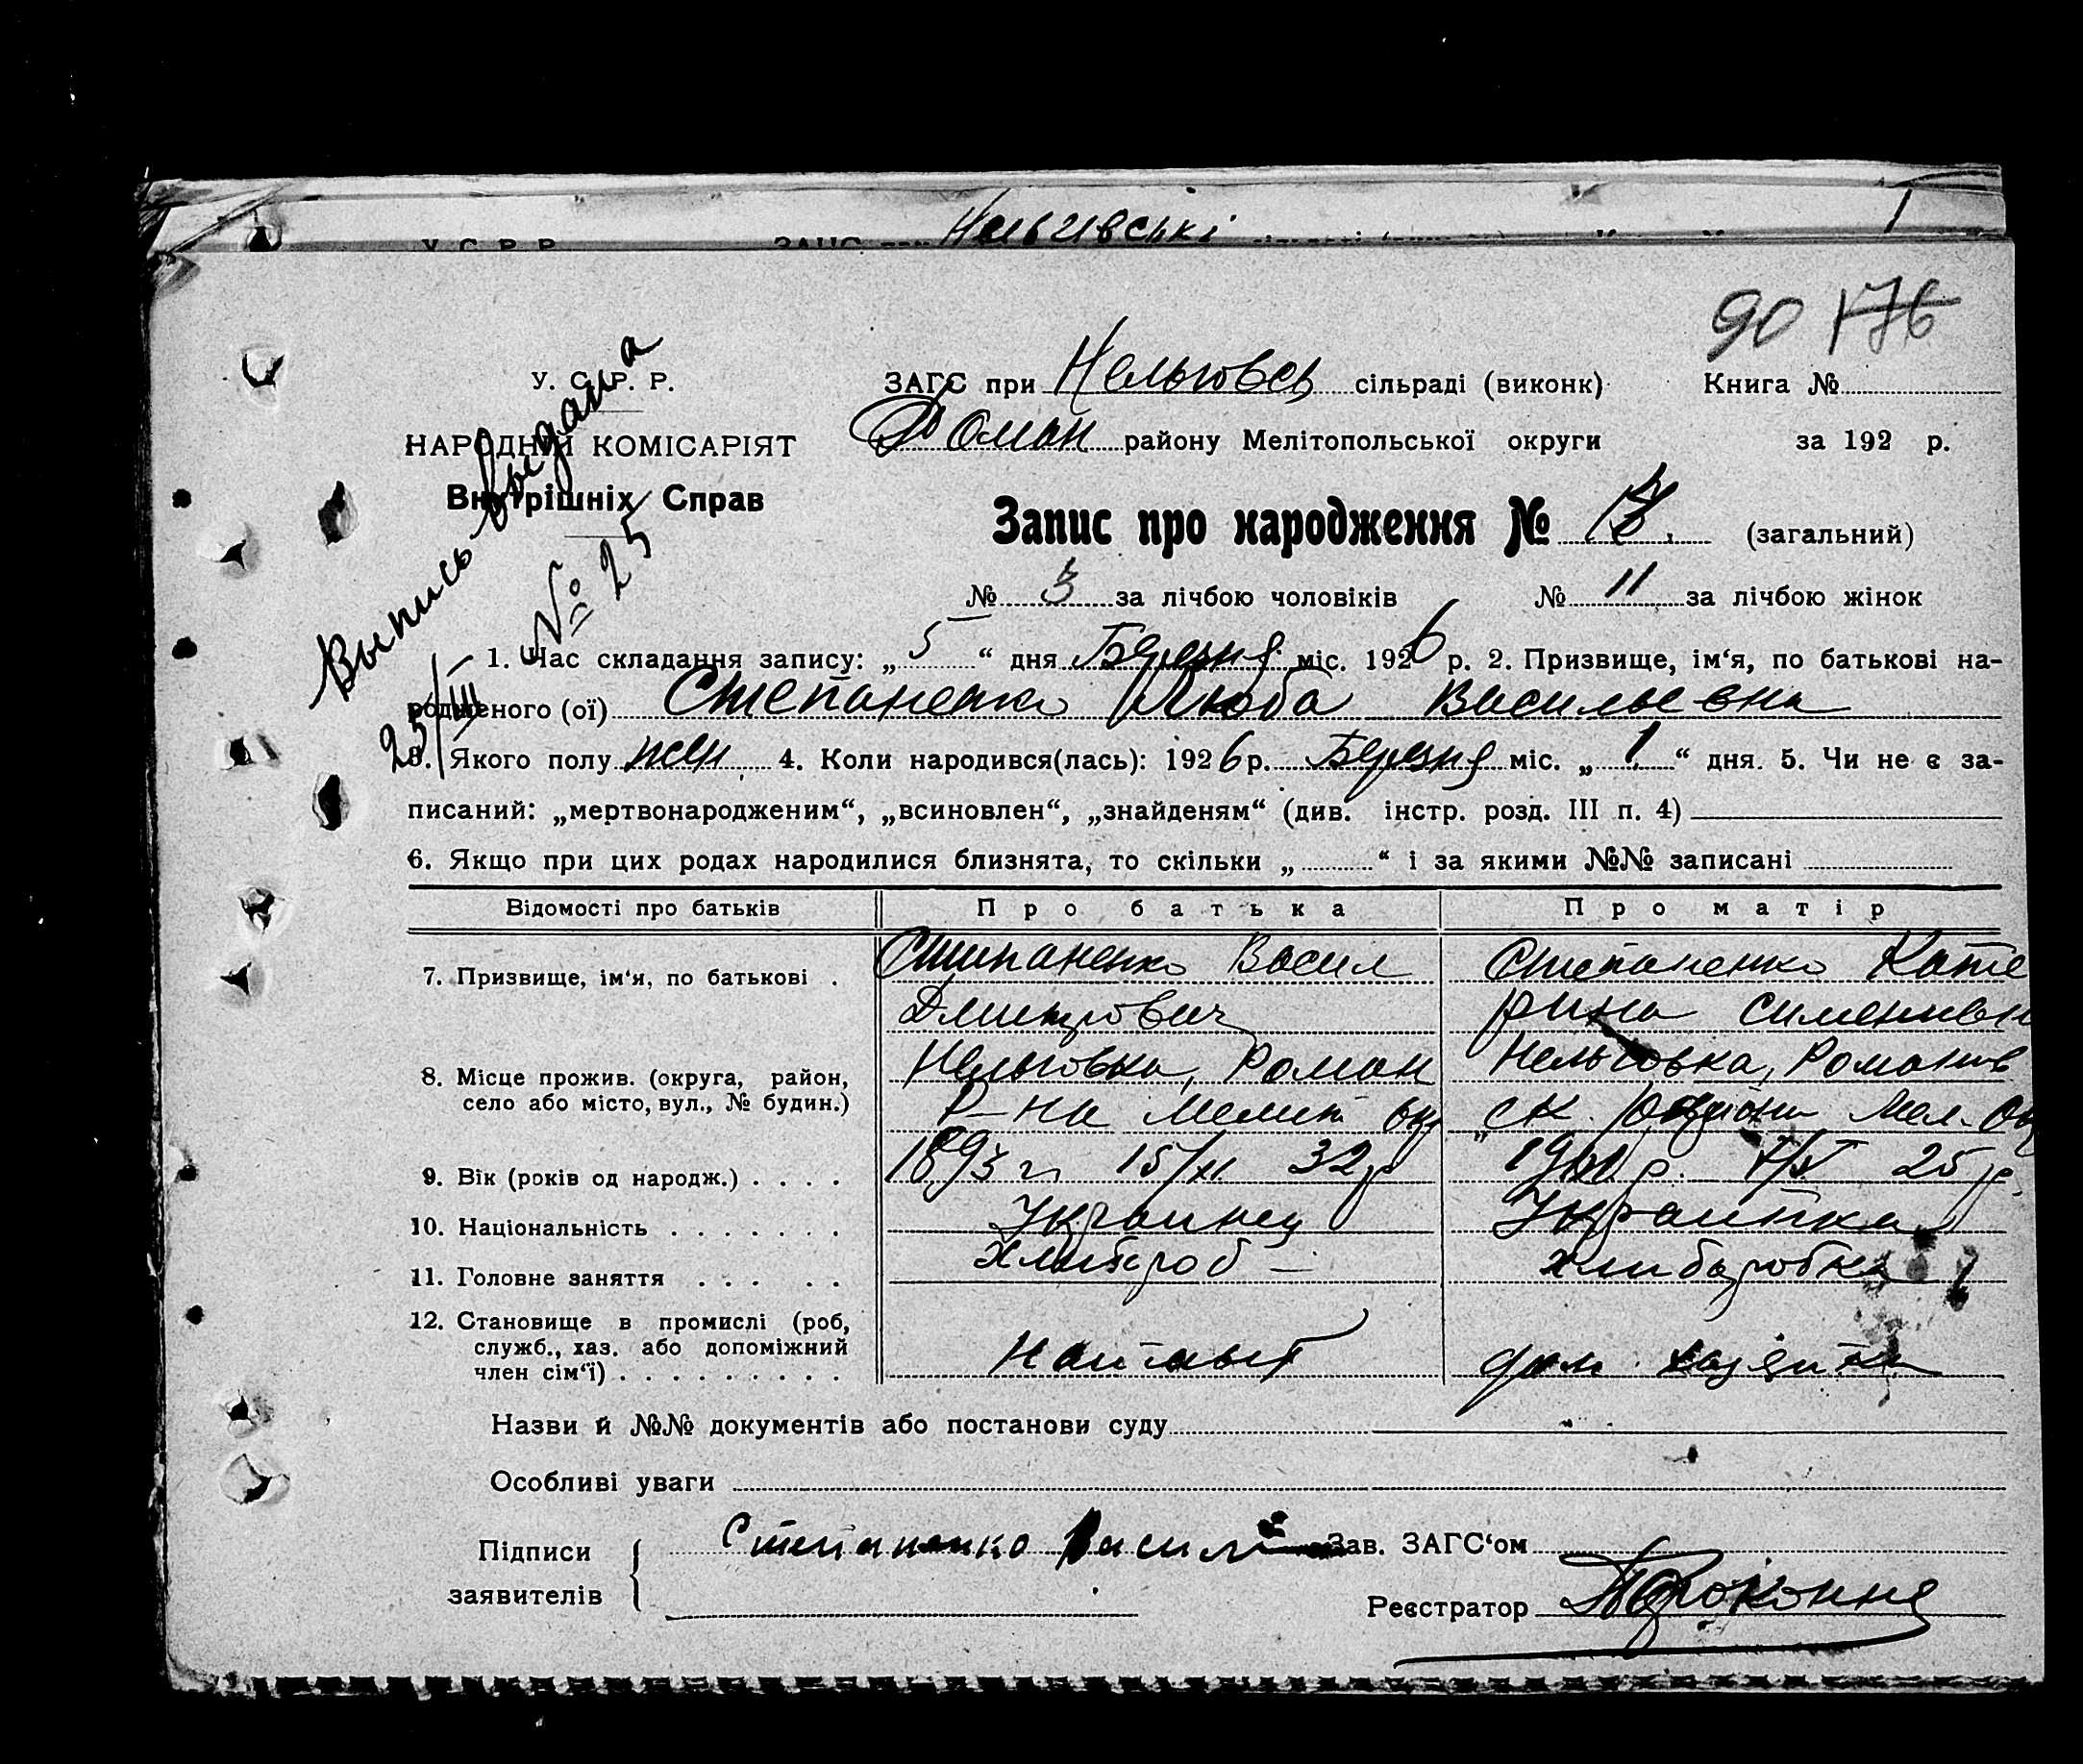 Нельгивські
90 176
У. С. Р. Р.
ЗАГС при Нельговсь сільраді (виконк) Книга №
НАРОДНИЙ КОМІСАРІЯТ
Роман району Мелітопольської округи за 192 р.
Внутрішніх Справ
Выпись выдана
№ 25
25/III
Запис про народження № (загальний)
№ 3 за лічбою чоловіків № 11 за лічбою жінок
1. Час складання запису: „ 5 “ дня Березня міс. 1926 р. 2. Призвище, ім‘я, по батькові на-
родженого (ої) Степаненко Люба Васильевна
3. Якого полу жен 4. Коли народився(лась): 1926 р. Березня міс. „ 1 “ дня. 5. Чи не є за-
писаний: „мертвонародженим“, „всиновлен“, „знайденям“ (див. інстр. розд. III п. 4)
6. Якщо при цих родах народилися близнята, то скільки „ “ і за якими №№ записані
Відомості про батьків Про батька Про матір
7. Призвище, ім‘я, по батькові . Степаненко Васил Степаненко Кате
Дмитрович рина Сименивн
8. Місце прожив. (округа, район, Нельговка, Роман Нельговка, Романив
село або місто, вул., № будин.) Р-на Мелит окр ск. Мел. Ок
9. Вік (років од народж.) . . . . 1893 г. 15/II 32 р 25 р.
10. Національність . . . . . . . Украинец Украинка
11. Головне заняття . . . . . Хлибороб – хлиборобка
12. Становище в промислі (роб,
служб., хаз. або допоміжний
член сім‘ї) . . . . . . . . . дом. хазяйка
Назви й №№ документів або постанови суду
Особливі уваги
Підписи Степаненко Васил Зав. ЗАГС‘ом
заявителів
Реєстратор